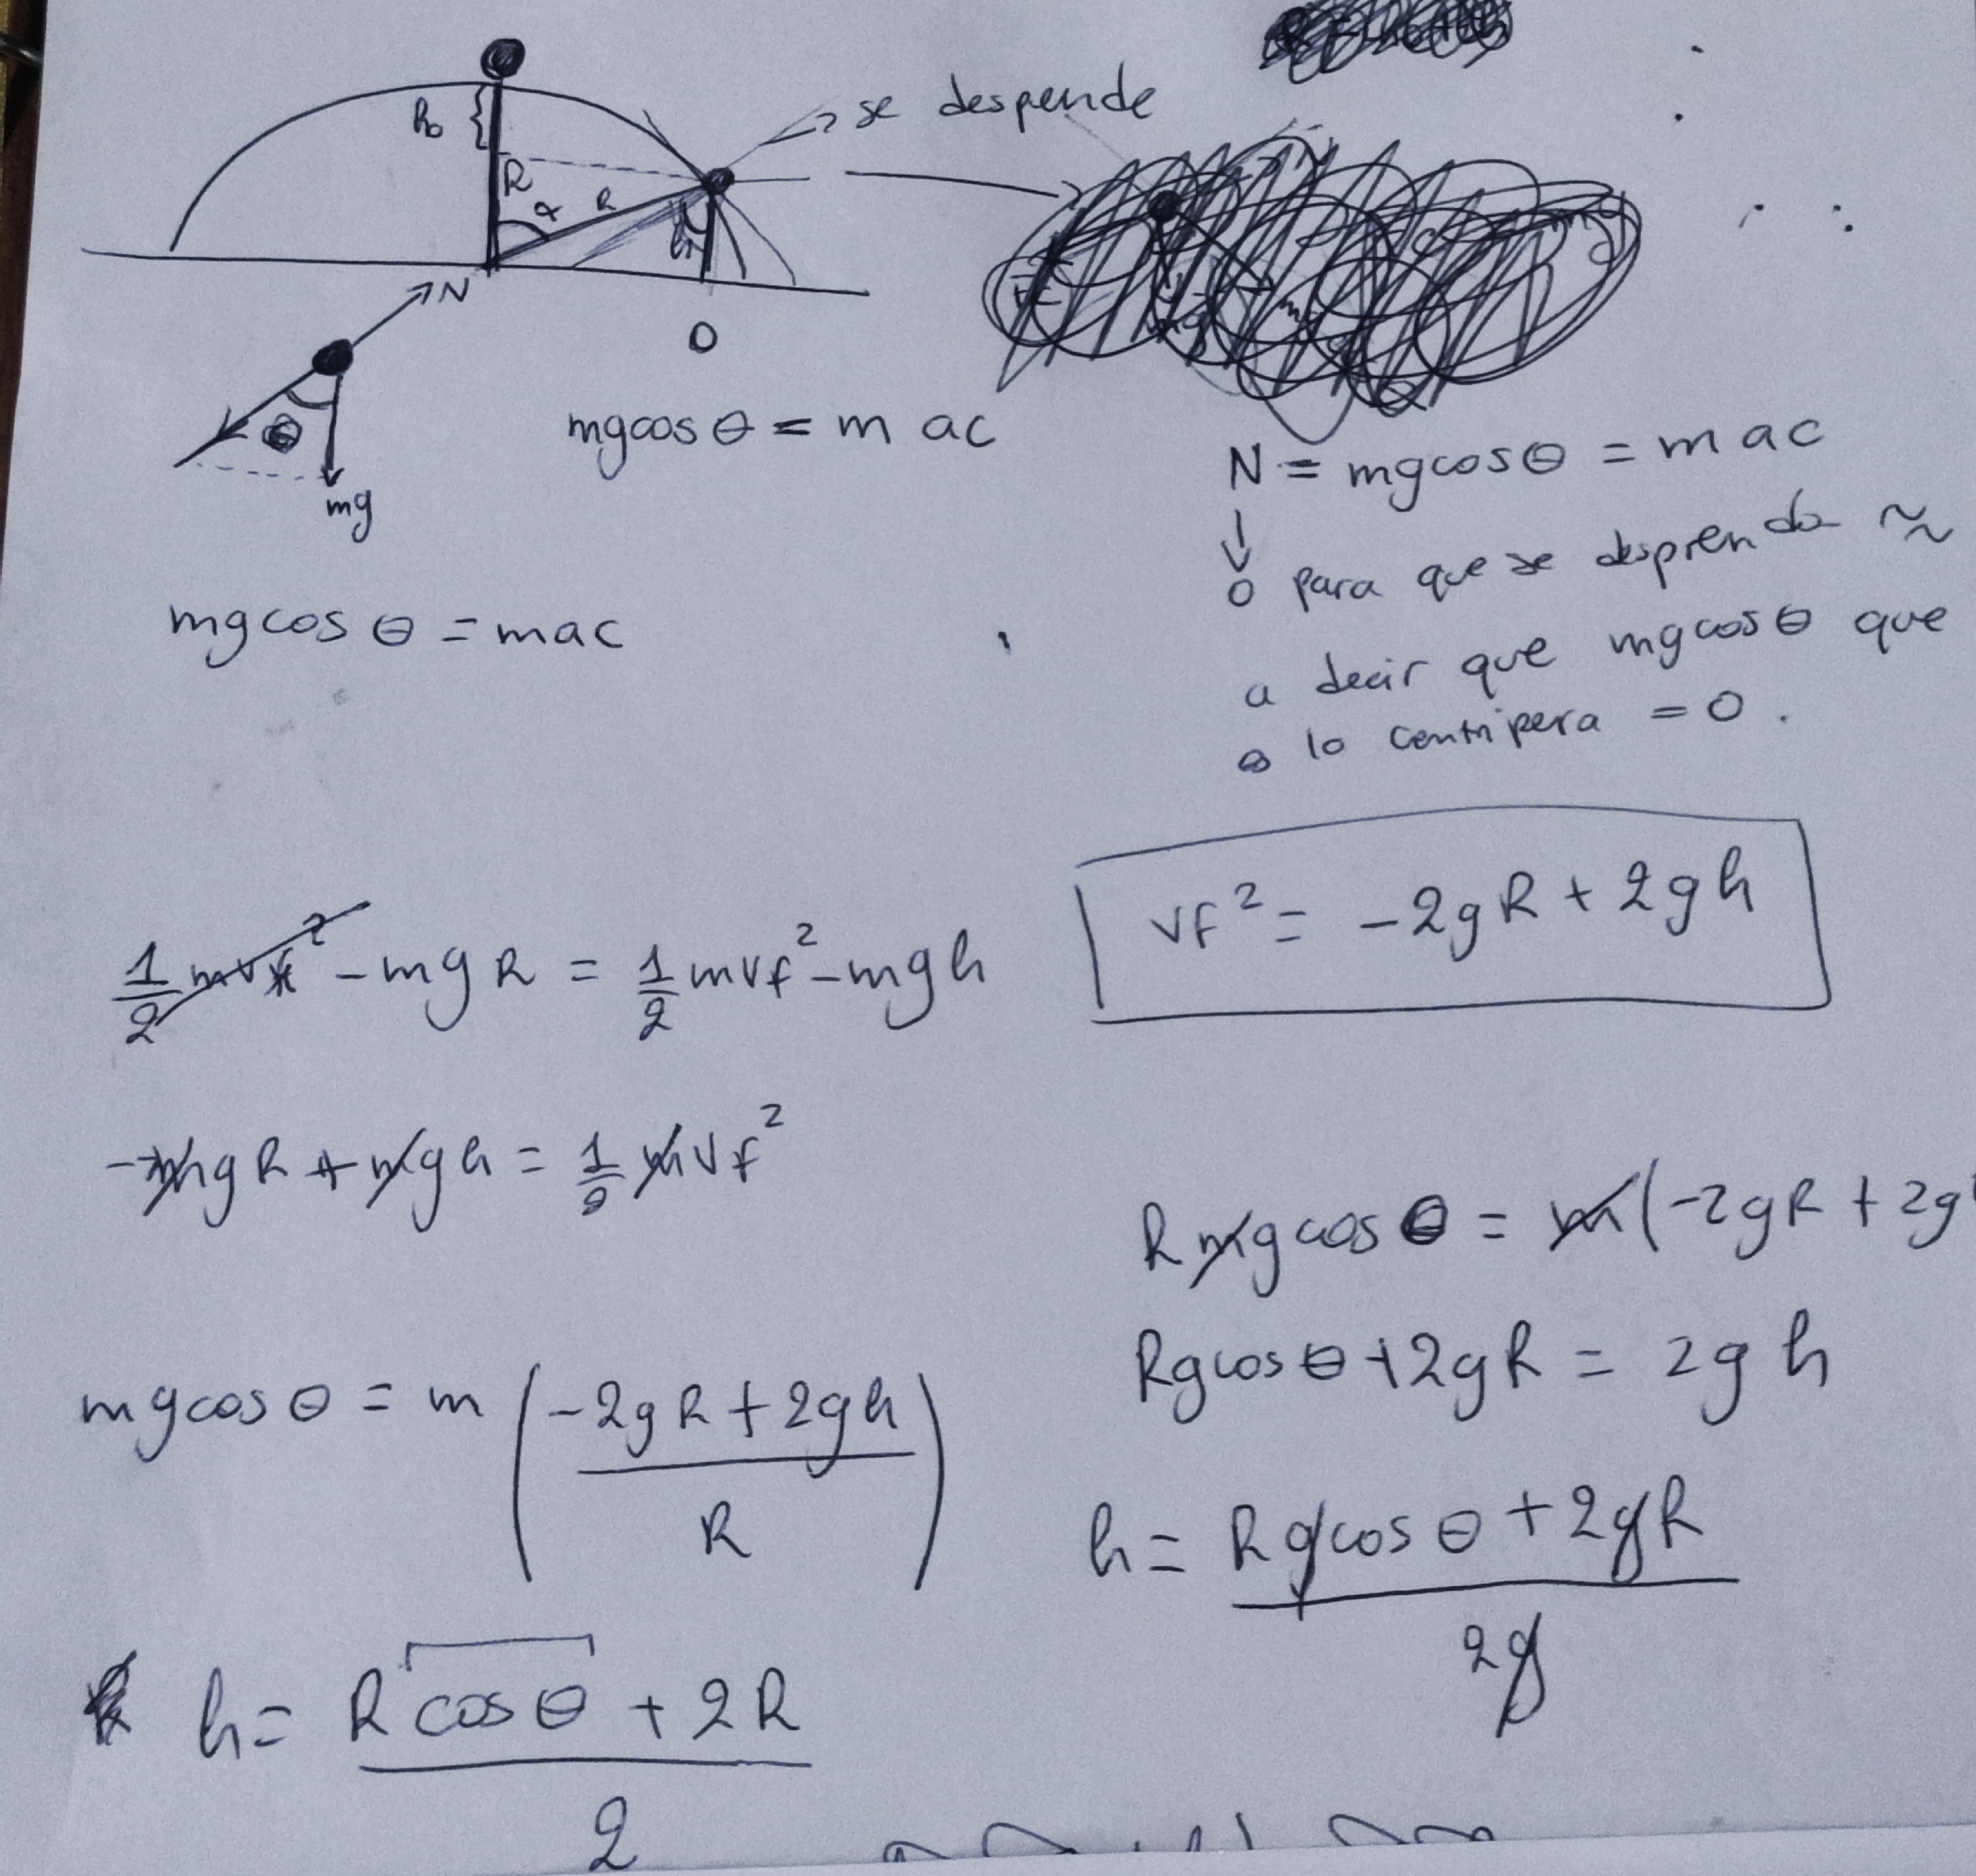 se despende
h₀
R
α
R
h
N
O
θ
mg
mgcosθ = m ac
N = mgcosθ = mac
↓
0 para que se desprenda ≈
a decir que mgcosθ que
es lo centripera = 0.
mgcosθ = mac
½mvi² - mgR = ½mvf² - mgh
vf² = -2gR + 2gh
-mgR + mgh = ½mvf²
Rmgcosθ = m(-2gR + 2g
Rgcosθ + 2gR = 2gh
mgcosθ = m((-2gR + 2gh)/R)
h = (Rgcosθ + 2gR)/2g
h = (Rcosθ + 2R)/2